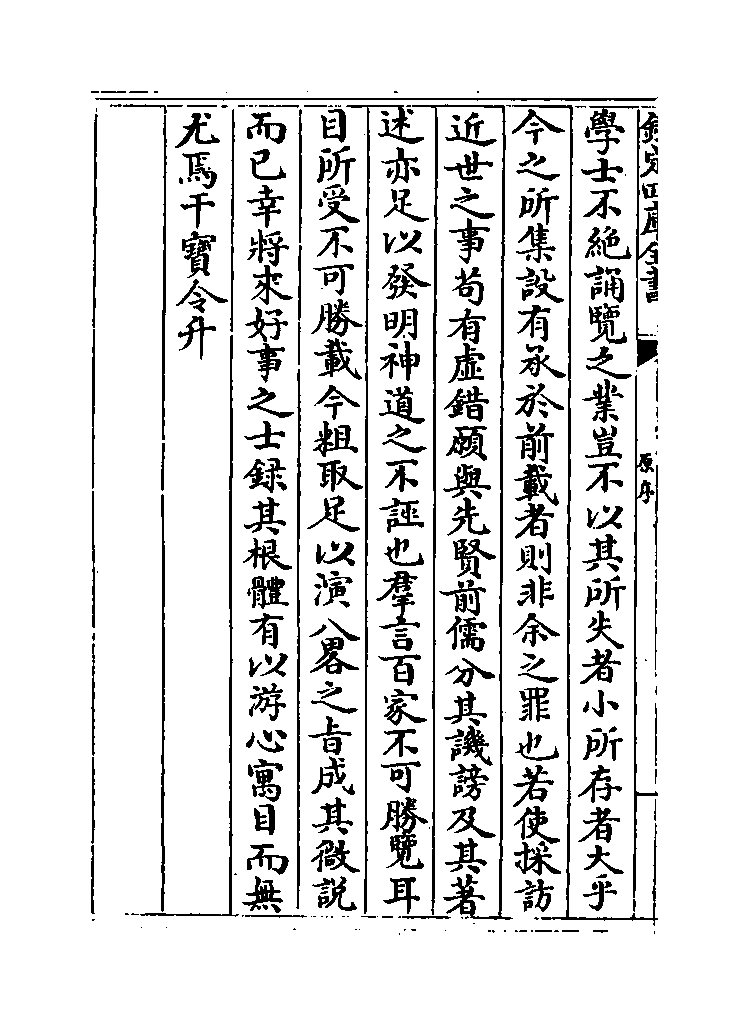 欽定四庫全書
原序
學士不絶誦覽之業豈不以其所失者小所存者大乎
今之所集設有承於前載者則非余之罪也若使採訪
近世之事苟有虛錯願與先賢前儒分其譏謗及其著
述亦足以發明神道之不誣也羣言百家不可勝覽耳
目所受不可勝載今粗取足以演八畧之旨成其微説
而已幸將來好事之士録其根體有以游心寓目而無
尤焉干寶令升